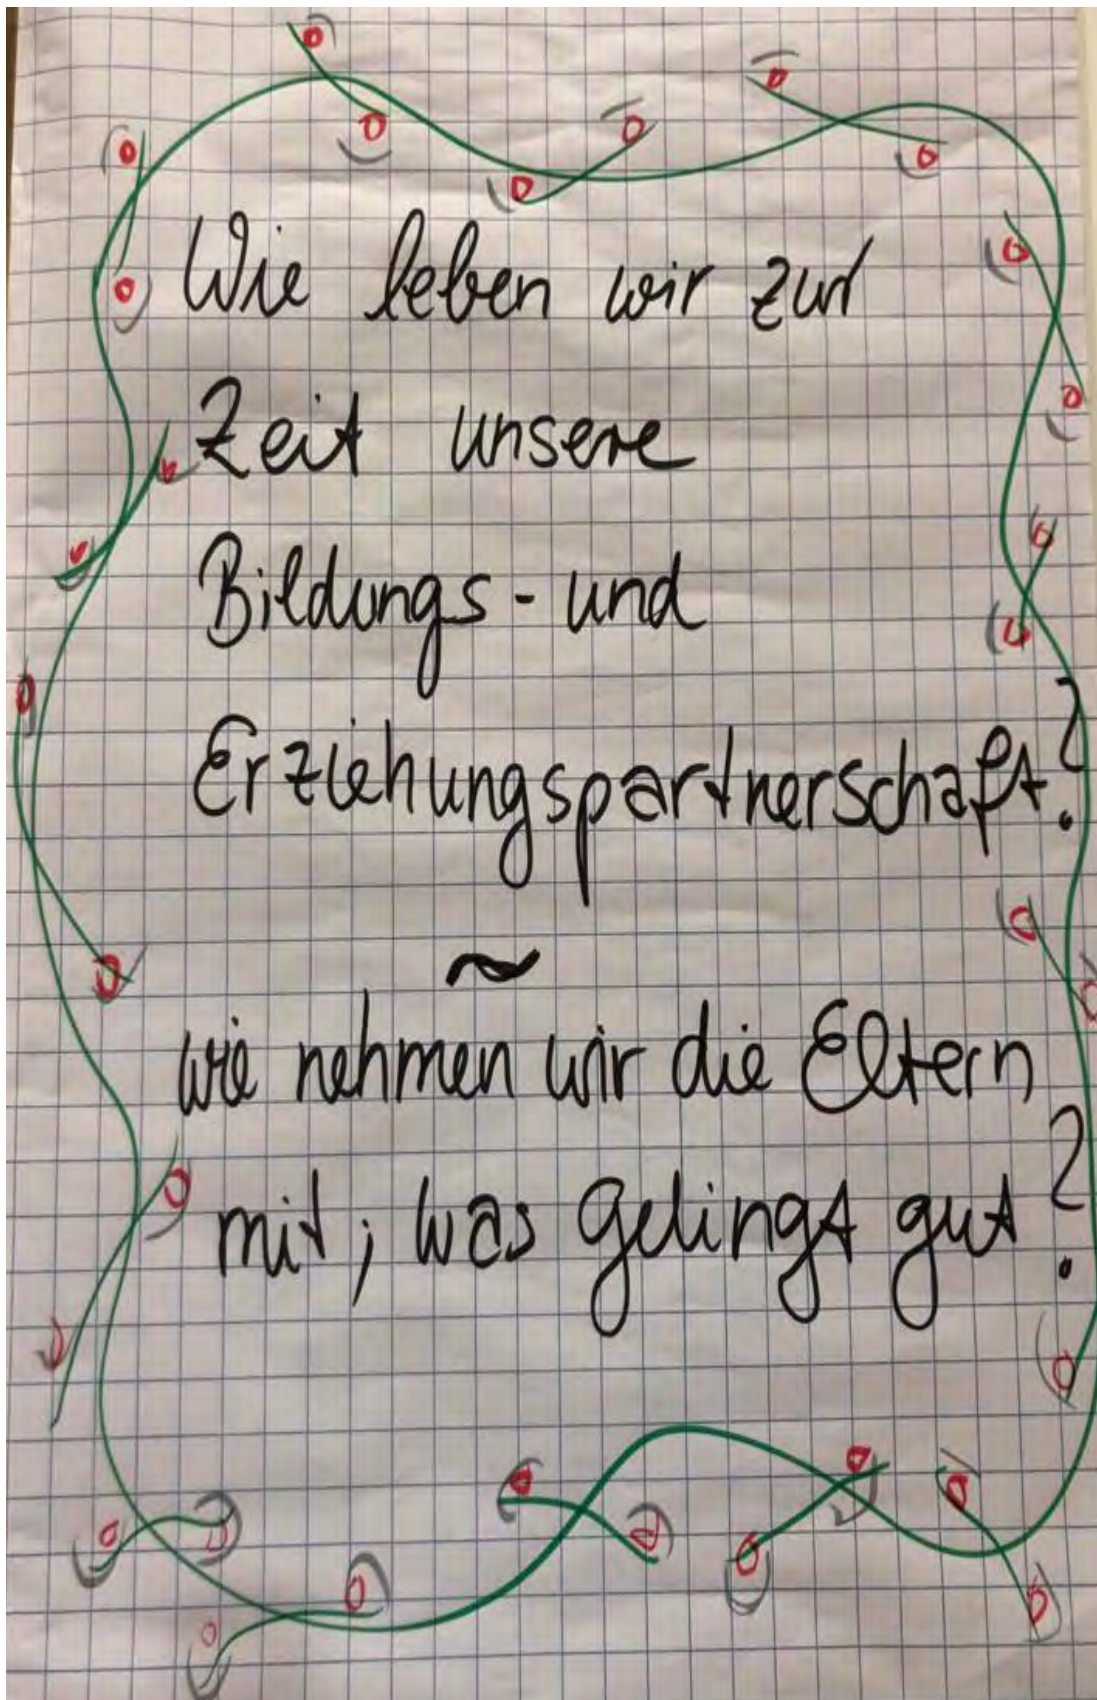 Wie leben wir zur
Zeit unsere
Bildungs- und
Erziehungspartnerschaft?
~
wie nehmen wir die Eltern
mit; was gelingt gut?